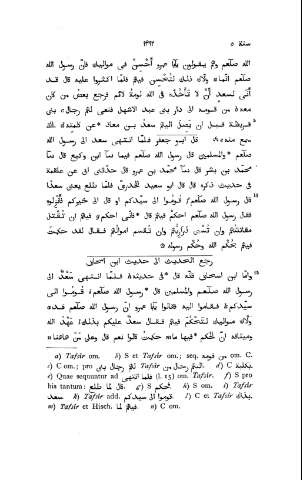 سنة ٥ ١٤٩٢
الله صلّعم وهم يقولون يابا عمرو أَحْسِنْ فى مواليك فانّ رسول الله
صلّعم انّما ولّاك ذلك لتُحْسِن فيهم فلمّا اكثروا عليه قال قد
أَنَى لسعد أَنْ لا تأْخُذه فى الله لومة لائم فرجع بعض من كان
معه من قومه الى دار بنى عبد الاشهل فنعى لهم رجال بنى
قريظة قبل ان يَصِل اليهم سعد بن معاذ عن كلمته الّتى
سمع منه قال ابو جعفر فلمّا انتهى سعد الى رسول الله
صلّعم والمسلمين قال رسول الله صلّعم فيما سآ ابن وكيع قال سآ
محمد بن بشر قال سآ محمد بن عمرو قال حدّثنى ابى عن علقمة
فى حديث ذكره قال قال ابو سعيد الخدرىّ فلمّا طلع يعنى سعدًا
قال رسول الله صلّعم قوموا الى سيّدكم او قال الى خيركم فأَنْزِلوه
فقال رسول الله صلّعم احكم فيهم قال فانّى احكم فيهم ان تُقْتَل
مقاتلتهم وان تُسْبَى ذراريّهم وان تُقسم اموالهم فقال لقد حكمت
فيهم بحُكْم الله وحُكْم رسوله
رجع الحديث الى حديث ابن اسحاق
وامّا ابن اسحاق فانّه قال فى حديثه فلمّا انتهى سَعْدٌ الى
رسول الله صلّعم والمسلمين قال رسول الله صلّعم قُوموا الى
سيّدكم فقاموا اليه فقالوا يابا عمرو انّ رسول الله صلّعم قد
ولّاك مواليك لتَحْكُم فيهم فقال سعد عليكم بذلك عهْد الله
وميثاقه انّ الحكم فيها ما حكمتُ قالوا نعم قال وعلى مَنْ هاهنا
a) Tafsîr om. b) S et Tafsîr om.; seq. من قومه om. C.
Quae sequuntur ad فلمّا انتهى (l. 15) om. Tafsîr. f) S pro
his tantum: قال لما طلع. g) S تحكم. h) S om. i) Tafsîr
سعد. k) Tafsîr add. قوموا الى سيدكم. l) C et Tafsîr بذاك.
m) Tafsîr et Hisch. فيهم لما. n) C om.